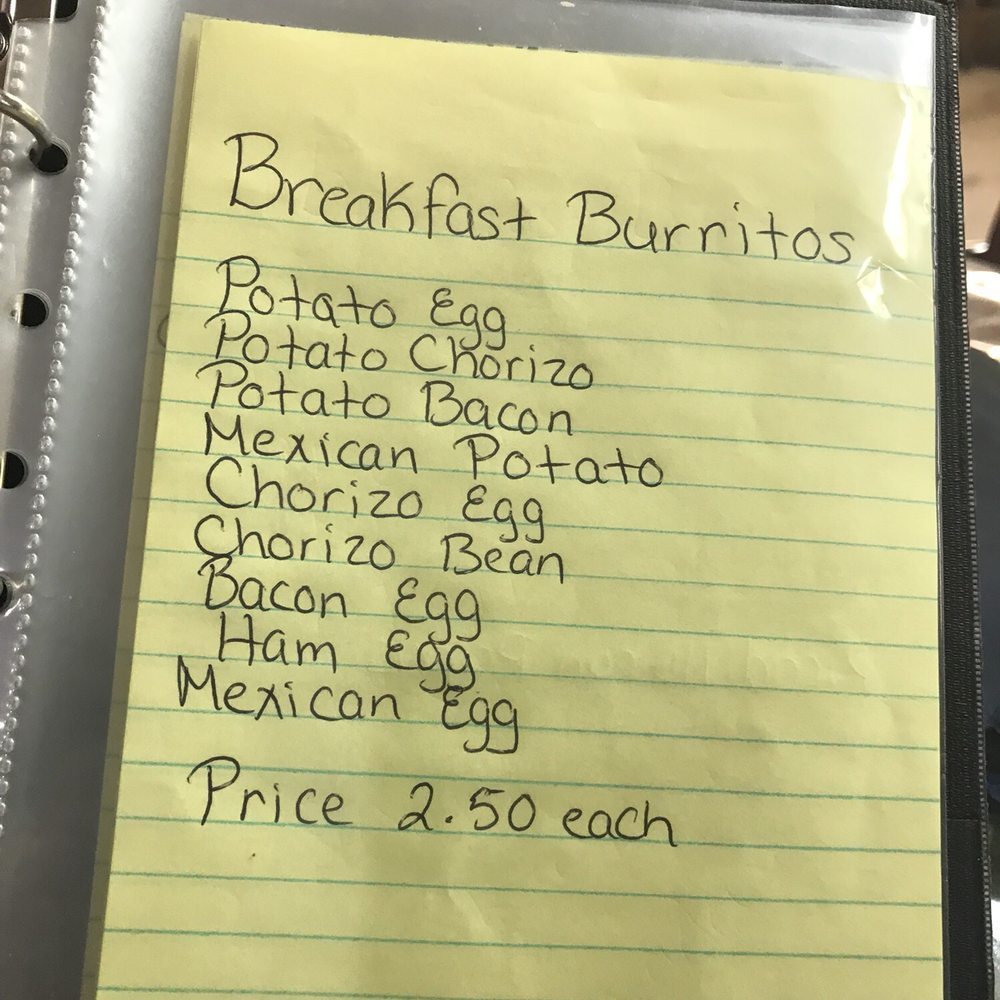 Breakfast Burritos
Potato Egg
Potato Chorizo
Potato Bacon
Mexican Potato
Chorizo Egg
Chorizo Bean
Bacon Egg
Ham Egg
Mexican Egg
Price 2.50 each